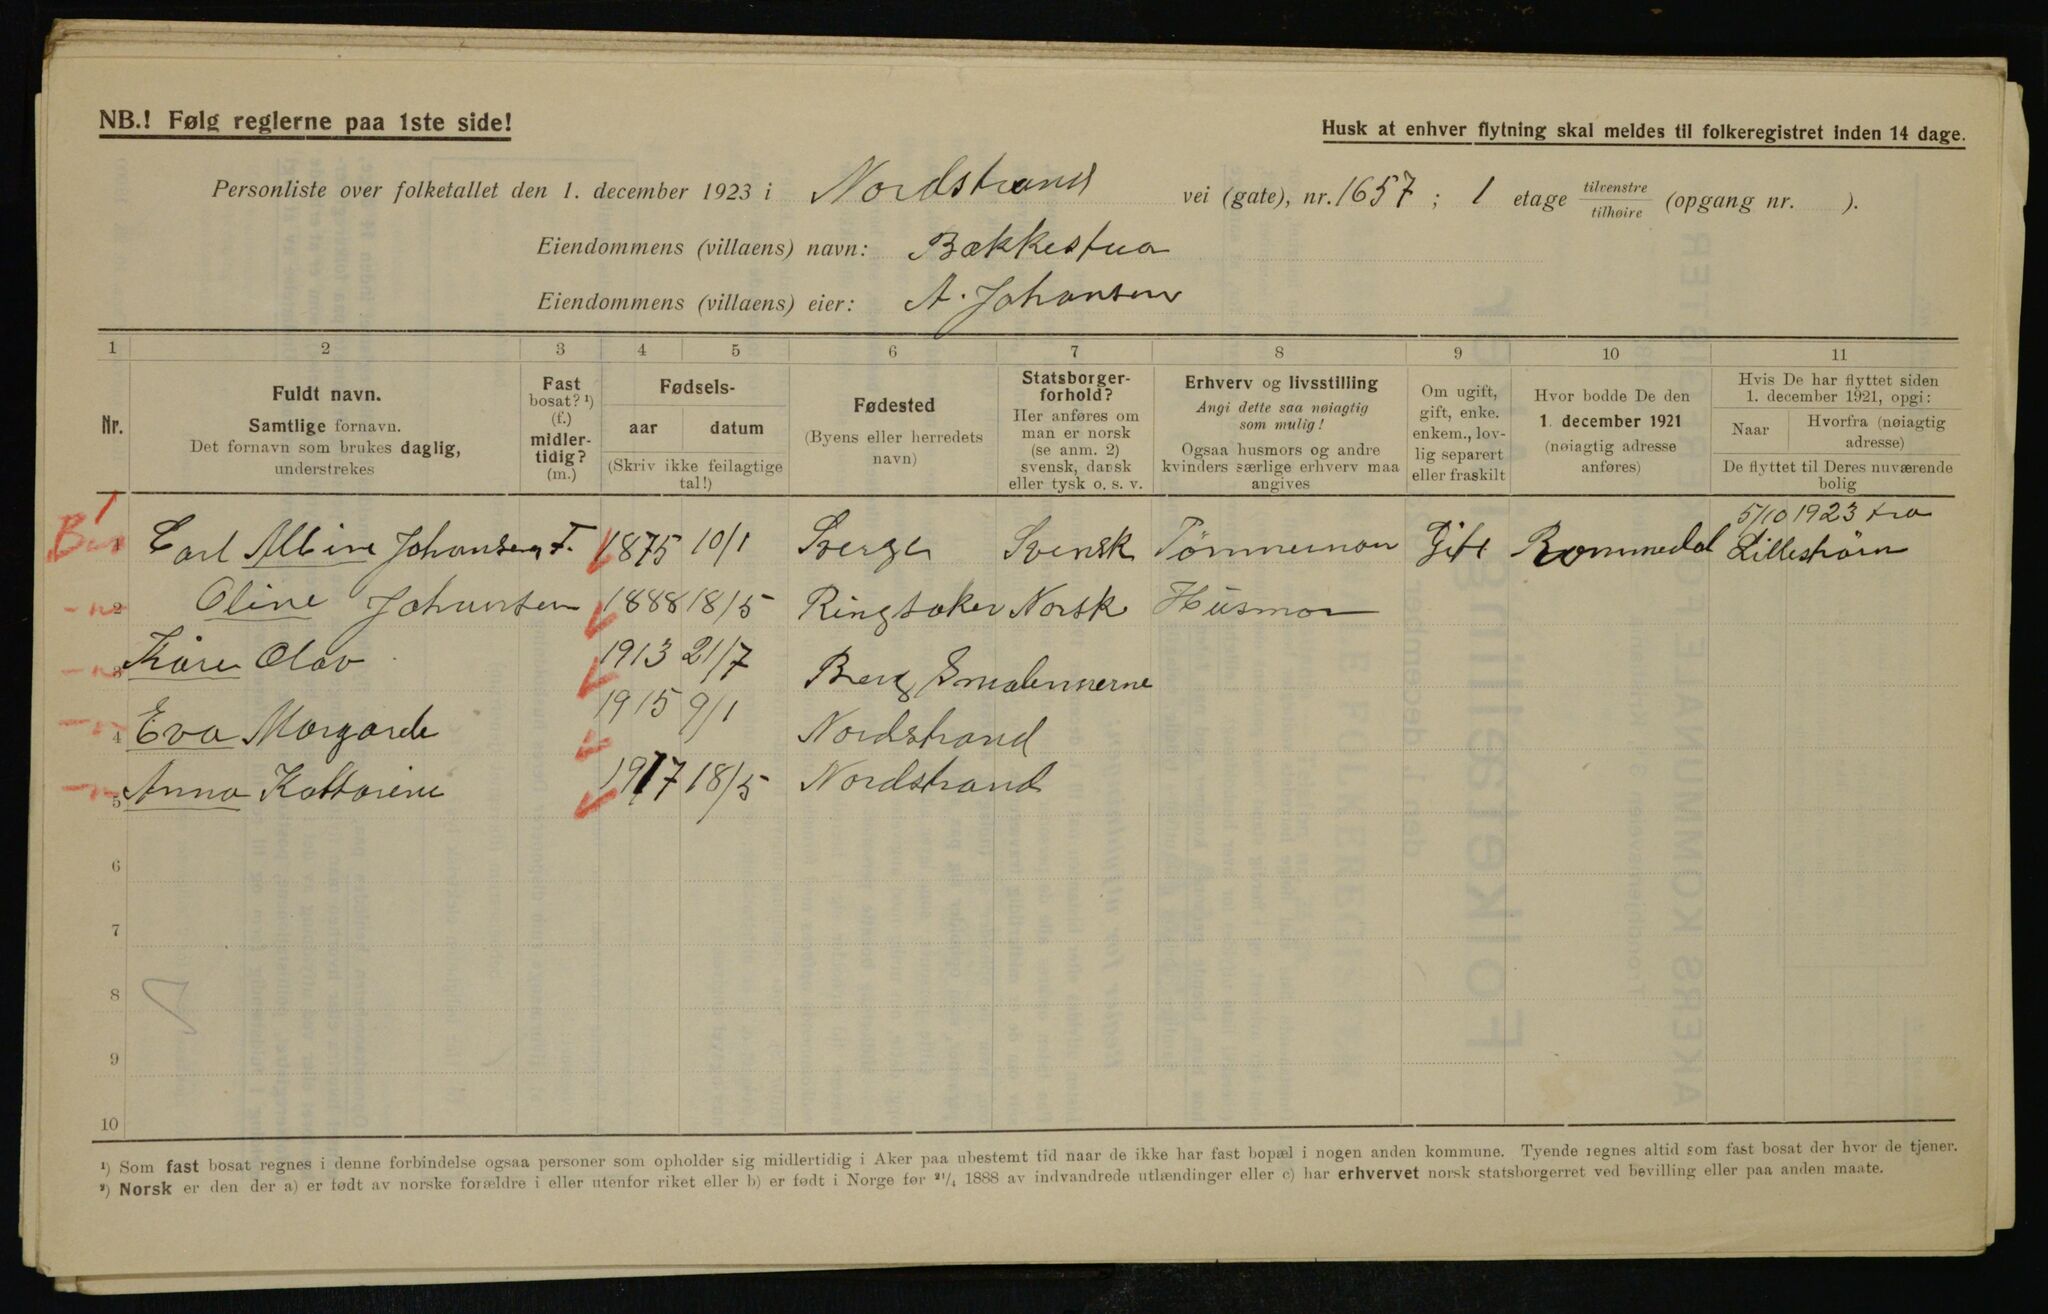 NB.! Følg reglerne paa 1ste side!
Husk at enhver flytning skal meldes til folkeregistret inden 14 dage.
Personliste over folketallet den 1. december 1923 i Nordstrand vei (gate), nr. 1657 ; 1 etage tilvenstre / tilhøire (opgang nr. ).
Eiendommens (villaens) navn: Bækkestua
Eiendommens (villaens) eier: A. Johansen
1 2 3 4 5 6 7 8 9 10 11
Nr.
Fuldt navn.
Samtlige fornavn.
Det fornavn som brukes daglig,
understrekes
Fast
bosat? ¹)
(f.)
midler-
tidig?
(m.)
Fødsels-
aar datum
(Skriv ikke feilagtige
tal!)
Fødested
(Byens eller herredets
navn)
Statsborger-
forhold?
Her anføres om
man er norsk
(se anm. 2)
svensk, dansk
eller tysk o. s. v.
Erhverv og livsstilling
Angi dette saa nøiagtig
som mulig!
Ogsaa husmors og andre
kvinders særlige erhverv maa
angives
Om ugift,
gift, enke.
enkem., lov-
lig separert
eller fraskilt
Hvor bodde De den
1. december 1921
(nøiagtig adresse
anføres)
Hvis De har flyttet siden
1. december 1921, opgi:
Naar Hvorfra (nøiagtig
adresse)
De flyttet til Deres nuværende
bolig
1
5/10 1923 fra
Carl Albine Johansen F. 1875 10/1 Sverge Svensk Tömmerman Gift Rommedal Lilleström
2 Oline Johansen 1888 18/5 Ringsaker Norsk Husmor
3 Kåre Olav 1913 21/7 Berg Smalennerne
4 Eva Margarde 1915 9/1 Nordstrand
5 Anna Kattarine 1917 18/5 Nordstrand
6
7
8
9
10
¹) Som fast bosat regnes i denne forbindelse ogsaa personer som opholder sig midlertidig i Aker paa ubestemt tid naar de ikke har fast bopæl i nogen anden kommune. Tyende regnes altid som fast bosat der hvor de tjener.
²) Norsk er den der a) er født av norske forældre i eller utenfor riket eller b) er født i Norge før ²¹/₄ 1888 av indvandrede utlændinger eller c) har erhvervet norsk statsborgerret ved bevilling eller paa anden maate.